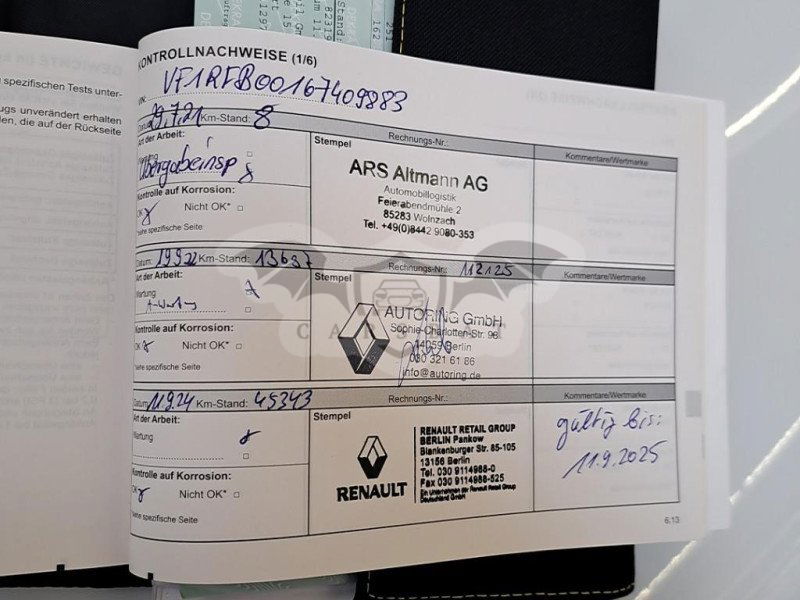 spezifischen Tests unter-
ugs unverändert erhalten
den, die auf der Rückseite
KONTROLLNACHWEISE (1/6)
VIN: VF1RFB00167409883
Datum: 29.7.21 Km-Stand: 8 Rechnungs-Nr.:
Art der Arbeit:
Wartung
Übergabeinsp
Kontrolle auf Korrosion:
OK Nicht OK*
*siehe spezifische Seite
Stempel
ARS Altmann AG
Automobillogistik
Feierabendmühle 2
85283 Wolnzach
Tel. +49(0)8442 9080-353
Kommentare/Wertmarke
Datum: 19.9.22 Km-Stand: 13637 Rechnungs-Nr.: 112125
Art der Arbeit:
Wartung
Kontrolle auf Korrosion:
OK Nicht OK*
*siehe spezifische Seite
Stempel
AUTORING GmbH
Sophie-Charlotten-Str. 96
14059 Berlin
030 321 61 86
info@autoring.de
Kommentare/Wertmarke
CARS
Datum: 11.9.24 Km-Stand: 45343 Rechnungs-Nr.:
Art der Arbeit:
Wartung
Kontrolle auf Korrosion:
OK Nicht OK*
*siehe spezifische Seite
Stempel
RENAULT
RENAULT RETAIL GROUP
BERLIN Pankow
Blankenburger Str. 85-105
13156 Berlin
Tel. 030 9114988-0
Fax 030 9114988-525
Ein Unternehmen der Renault Retail Group
Deutschland GmbH
Kommentare/Wertmarke
gültig bis:
11.9.2025
6.13